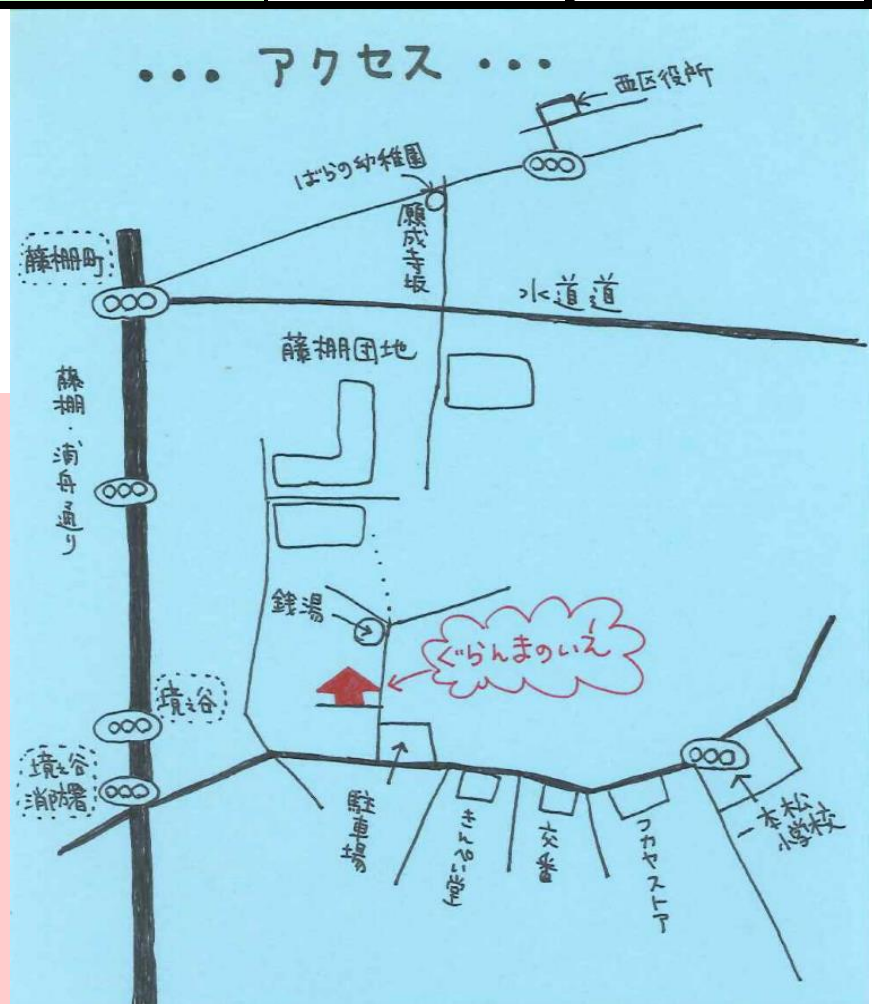 ・・・ アクセス ・・・
西区役所
ばらの幼稚園
願成寺坂
藤棚町
水道道
藤棚団地
藤棚・浦舟通り
銭湯
ぐらんまのいえ
境之谷
境之谷
消防署
駐車場
きんぺい堂
交番
フカヤストア
一本松
小学校